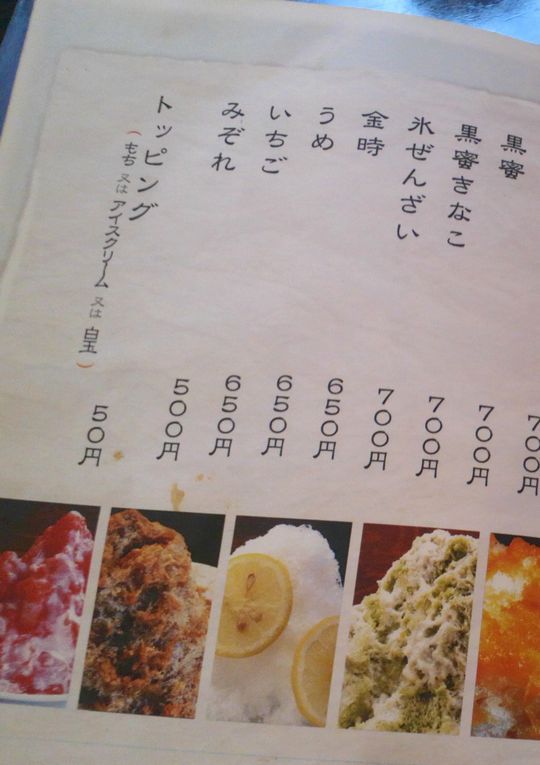 黒蜜 700円
黒蜜きなこ 700円
氷ぜんざい 700円
金時 650円
うめ 650円
いちご 650円
みぞれ 500円
トッピング 50円
(もち又はアイスクリーム又は白玉)